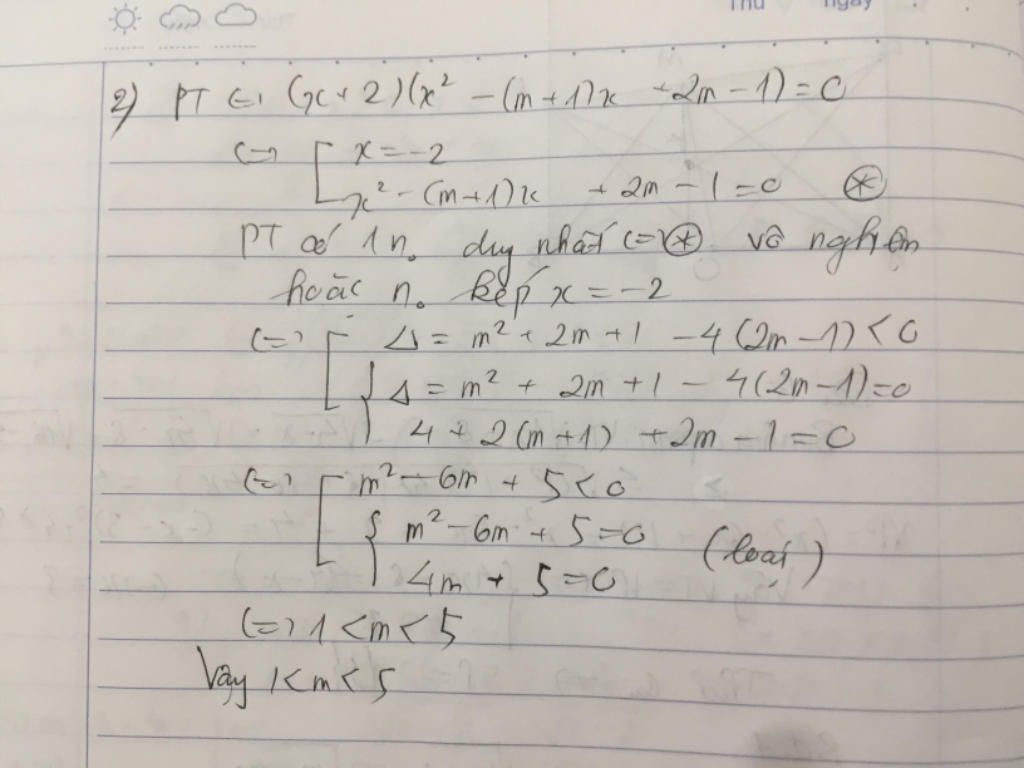 Thứ ngày
2) PT <=> (x + 2)(x² - (m + 1)x + 2m - 1) = 0
<=> [ x = -2
x² - (m+1)x + 2m - 1 = 0 (*)
PT có 1 n. duy nhất <=> (*) vô nghiệm
hoặc n. kép x = -2
<=> [ Δ = m² + 2m + 1 - 4(2m - 1) < 0
{ Δ = m² + 2m + 1 - 4(2m - 1) = 0
4 + 2(m + 1) + 2m - 1 = 0
<=> [ m² - 6m + 5 < 0
{ m² - 6m + 5 = 0 (loại)
4m + 5 = 0
<=> 1 < m < 5
Vậy 1 < m < 5